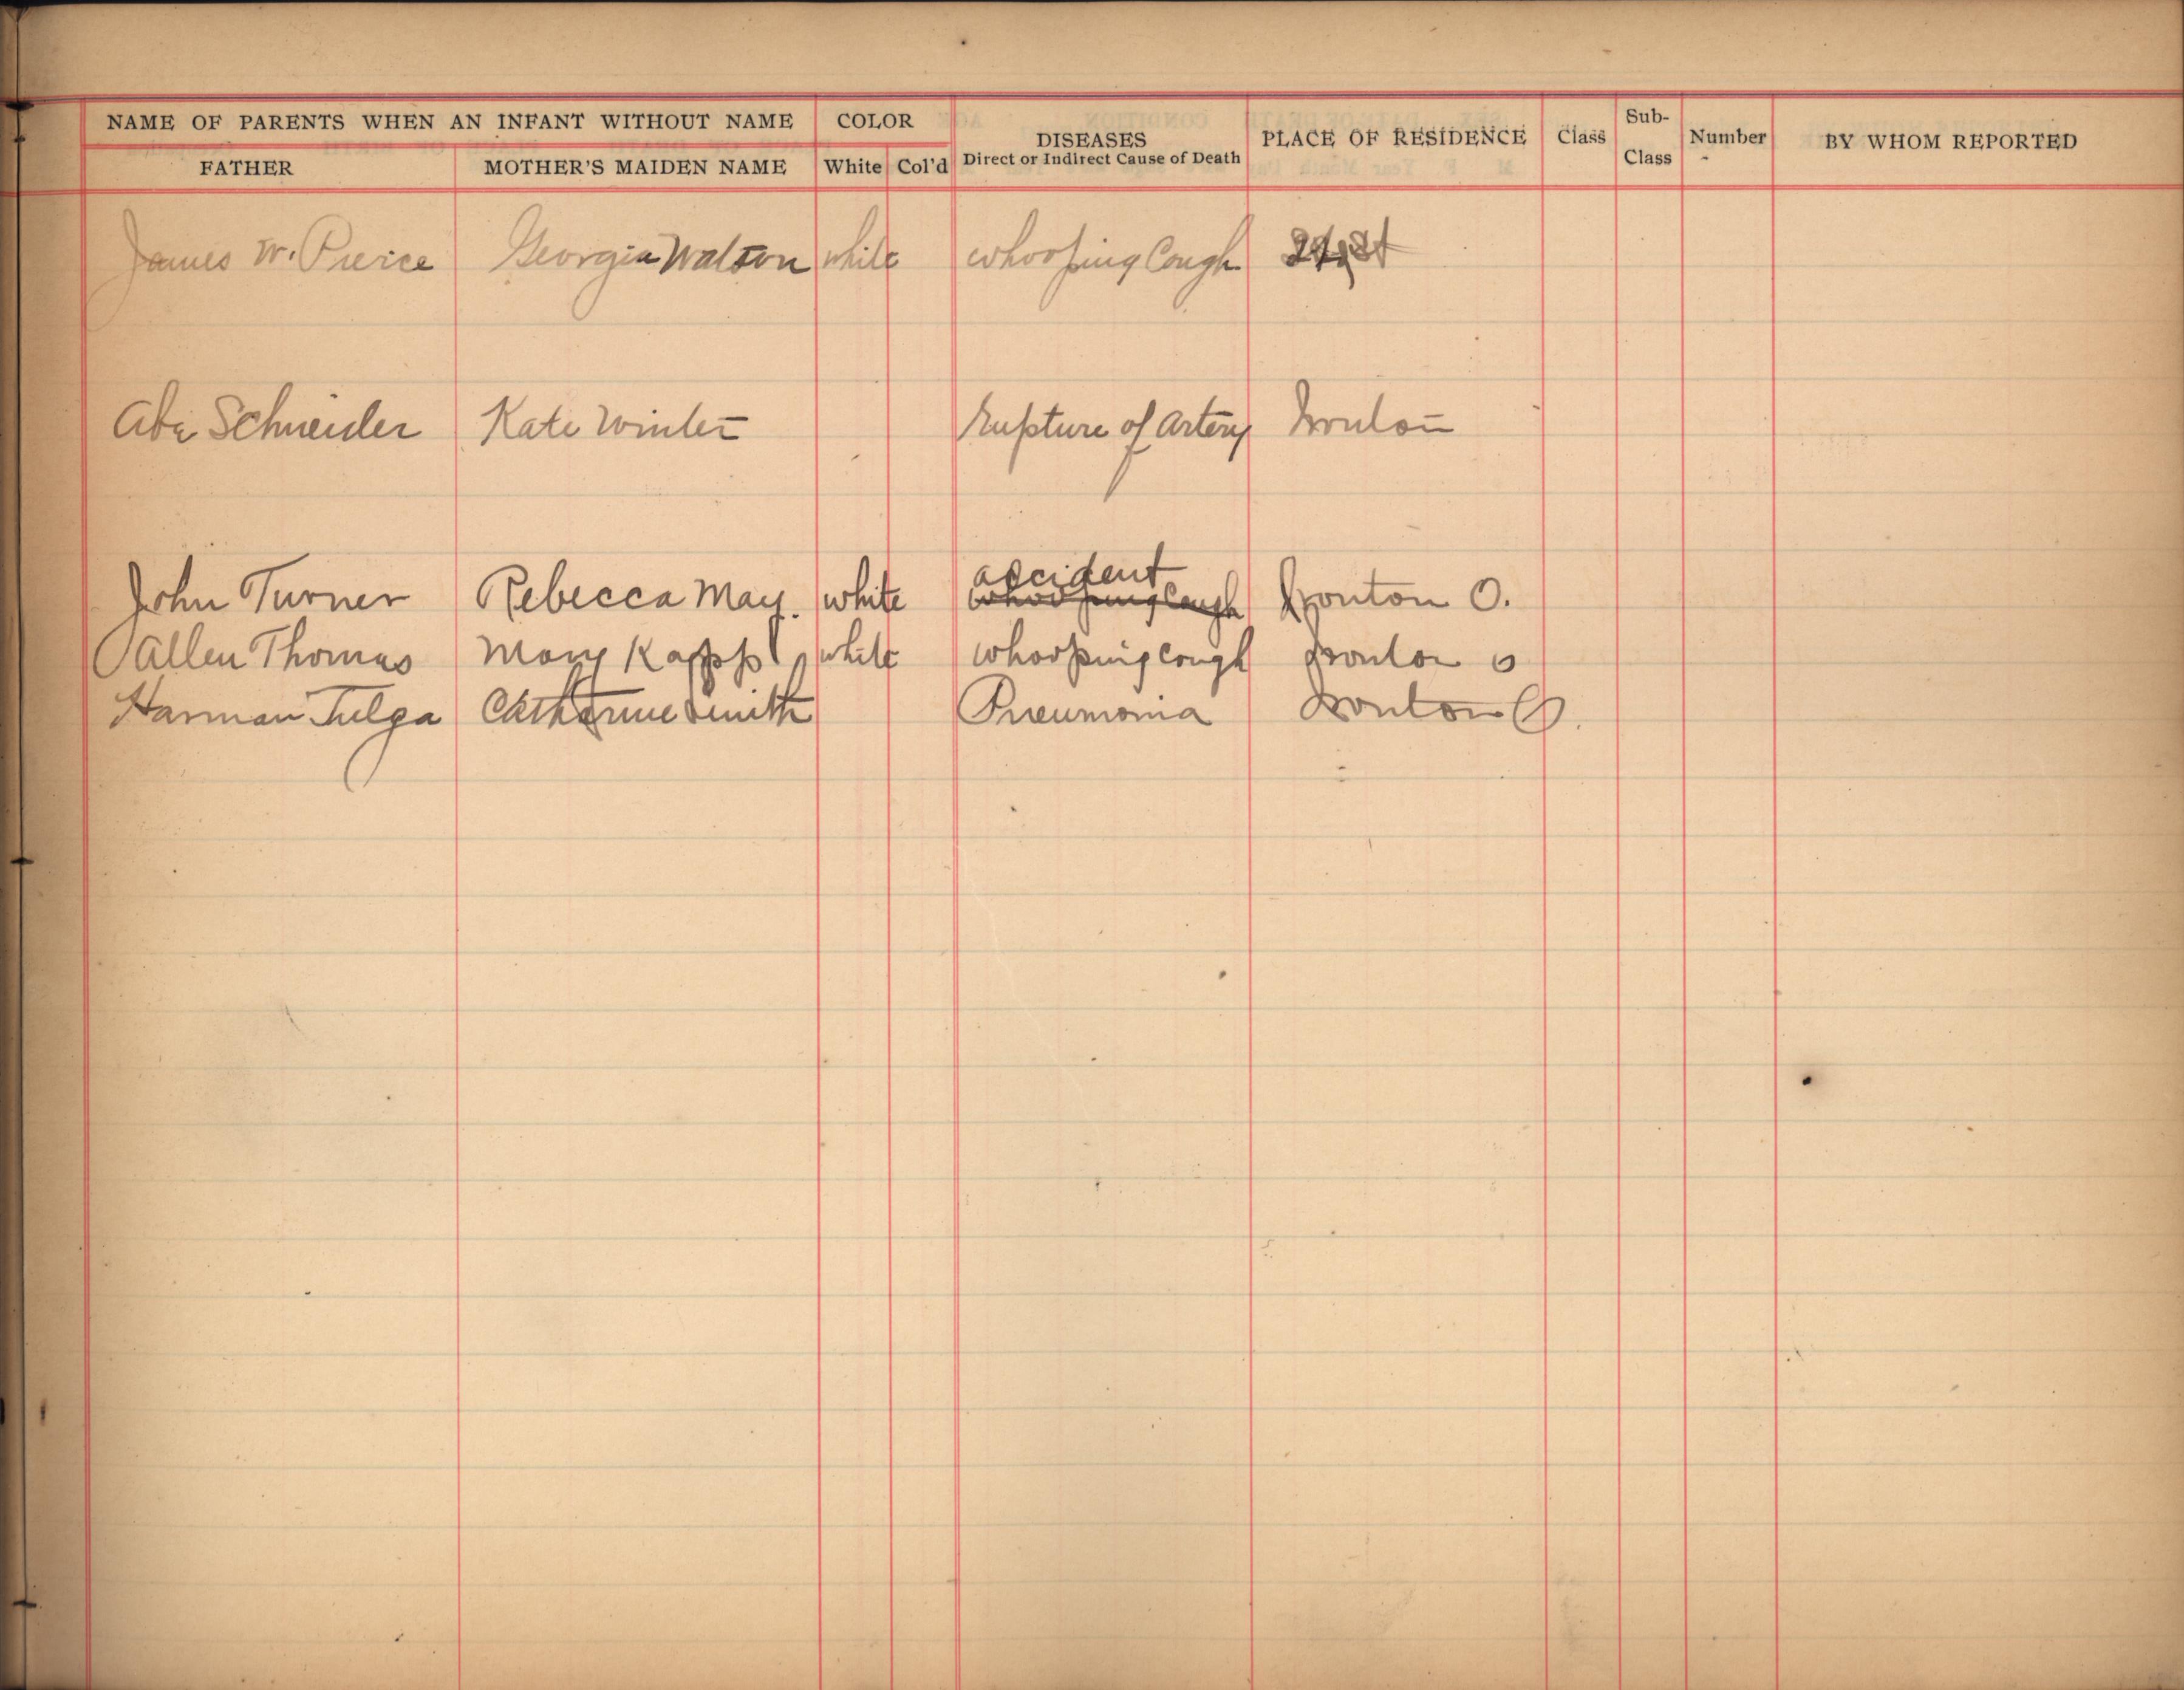 NAME OF PARENTS WHEN AN INFANT WITHOUT NAME COLOR DISEASES Direct or Indirect Cause of Death PLACE OF RESIDENCE Class Sub-Class Number BY WHOM REPORTED
FATHER MOTHER'S MAIDEN NAME White Col'd
James W. Pierce Georgia Walton white whooping Cough
Abe Schneider Kate Winter Rupture of Artery Ironton
accident
John Turner Rebecca May. white whooping cough Ironton O.
Allen Thomas Mary white whooping cough Ironton O
Harman Julga Catharine Smith Pneumonia Ironton O.